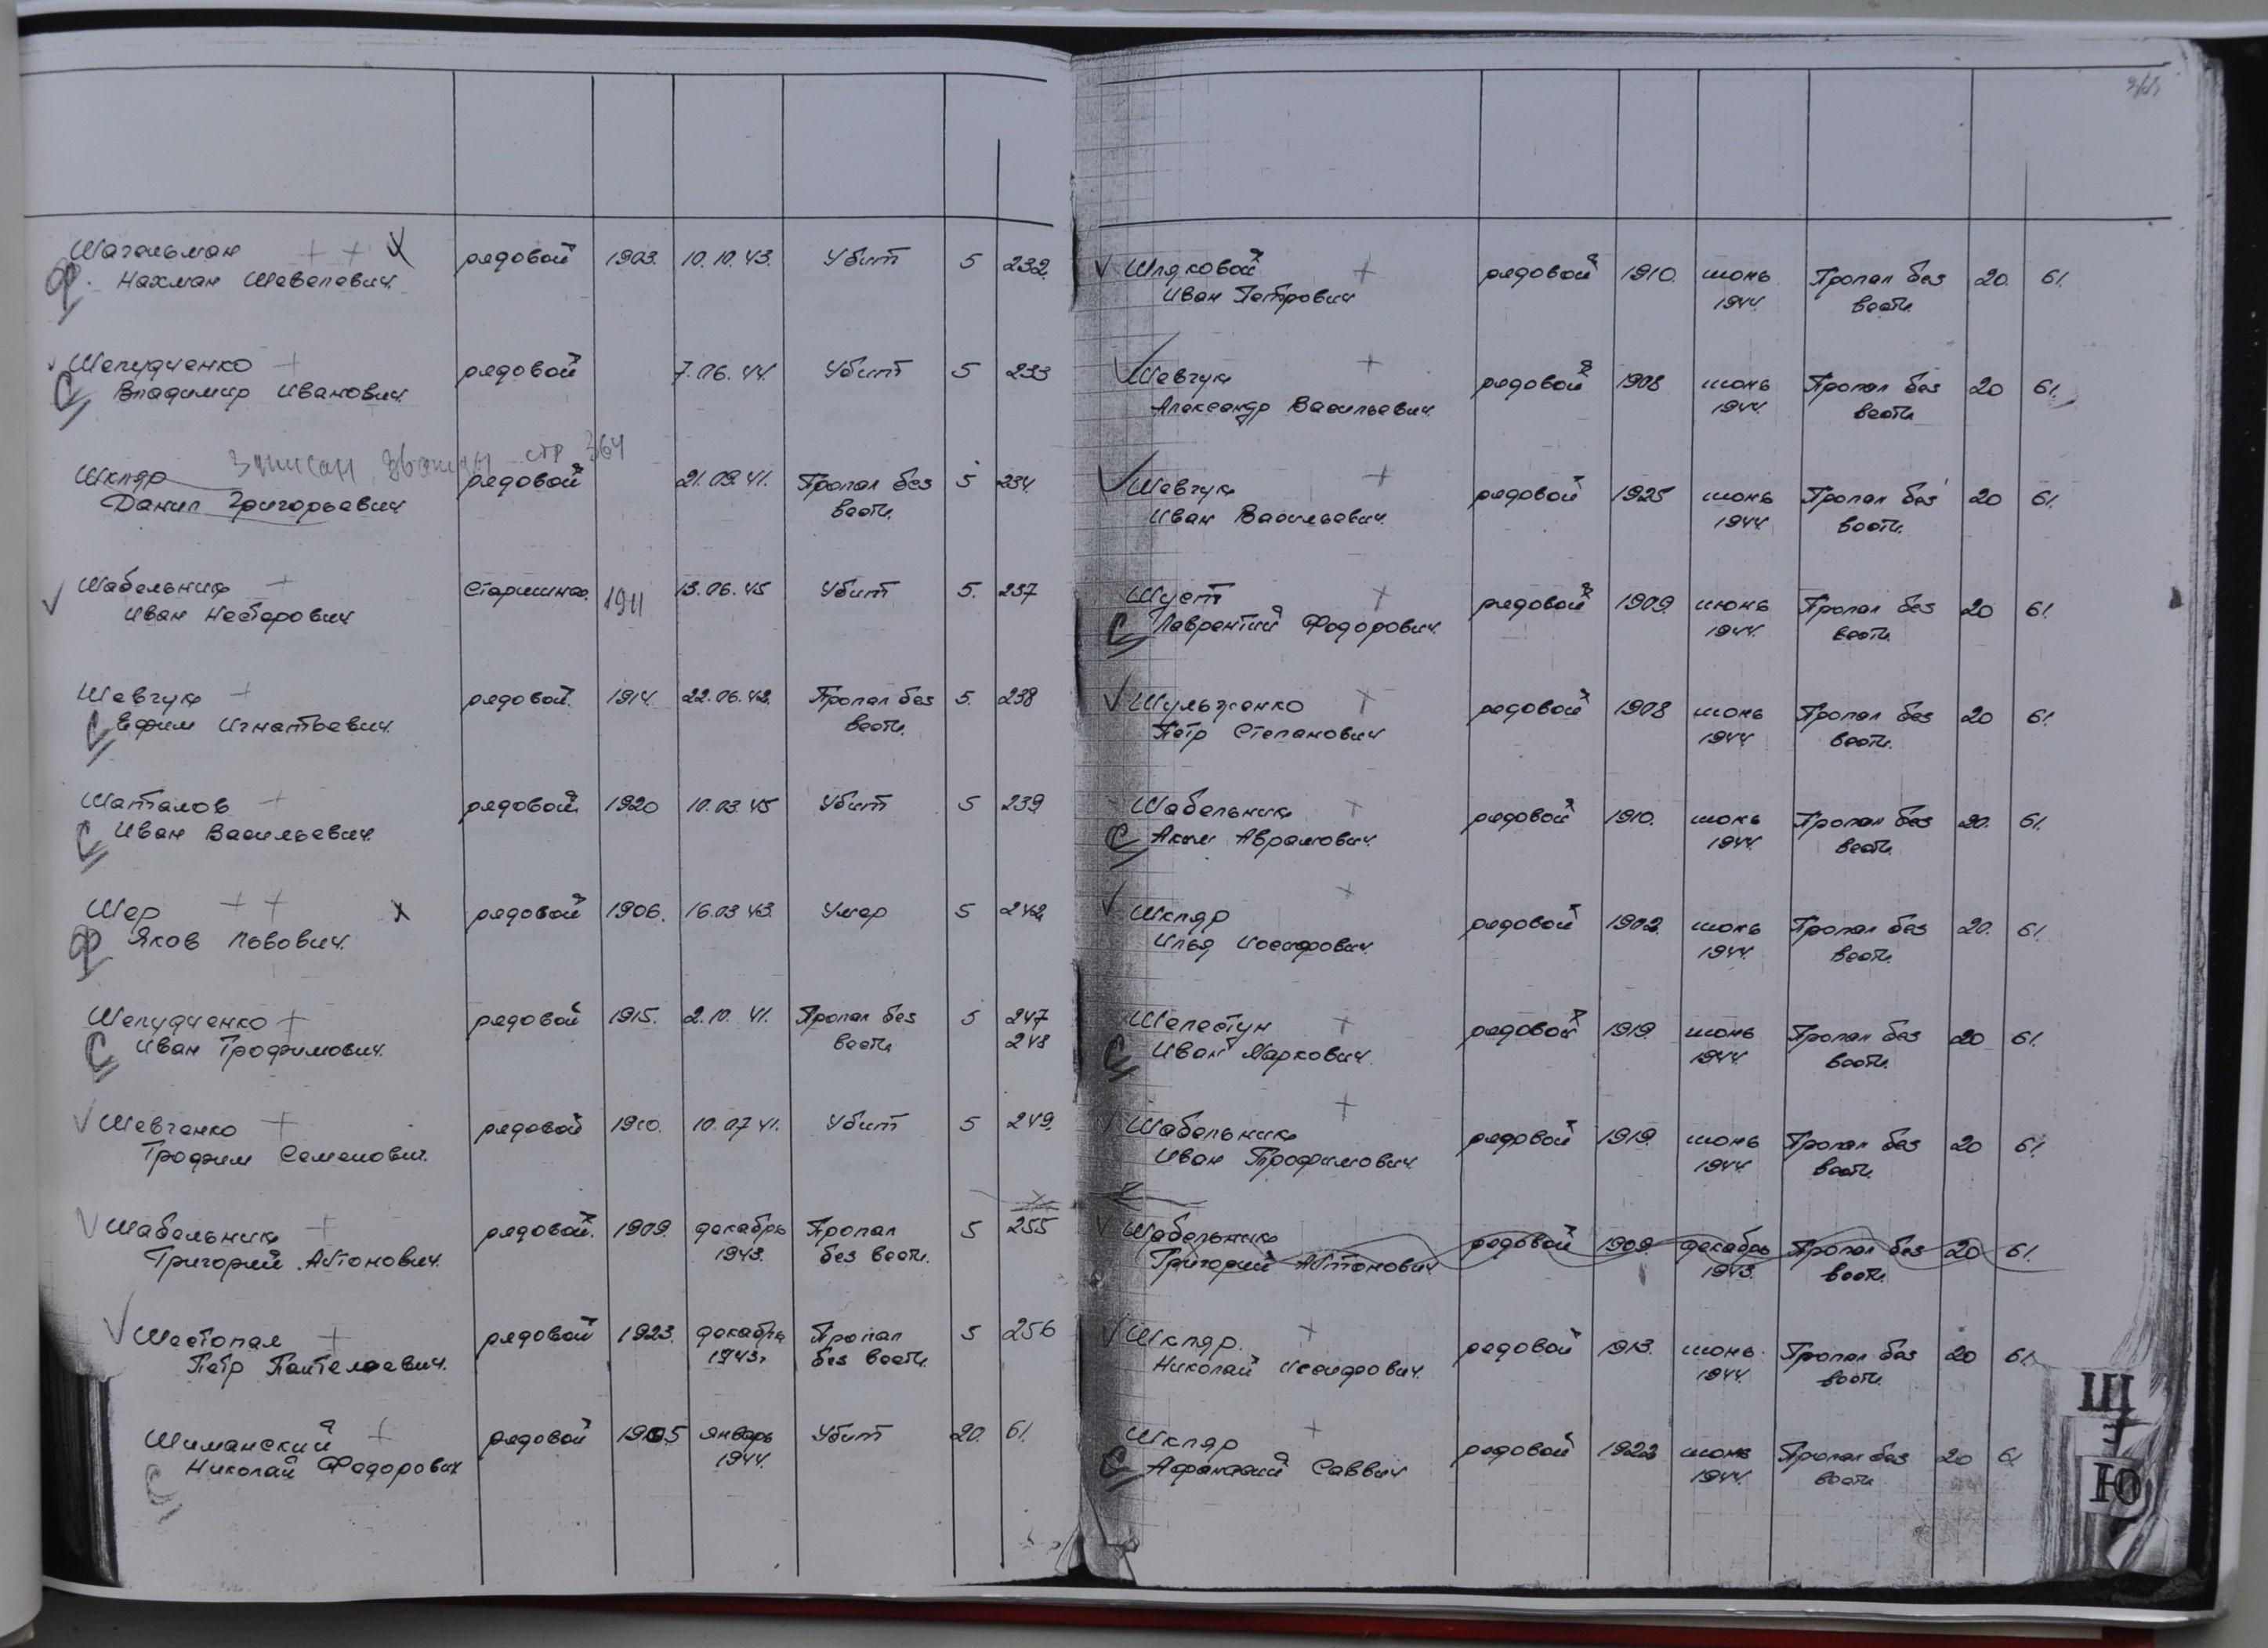 Шагальман рядовой 1903. 10.10.43. Убит 5 232.
Ф. Нахман Шевелевич.
Шепудченко рядовой 7.06.44. Убит 5 233
С Владимир Иванович.
записан дважды стр 364
Шкляр рядовой 21.09.41. Пропал без 5 234
Данил Григорьевич вести.
Шабельник Старшина. 1911 13.06.45 Убит 5. 237
Иван Несторович
Шевчук рядовой. 1914. 22.06.42. Пропал без 5. 238
С Ефим Игнатьевич. вести.
Шаталов рядовой. 1920 10.03.45 Убит 5 239
С Иван Васильевич.
Шер рядовой 1906. 16.03.43. Умер 5 242
Ф Яков Львович.
Шепудченко рядовой 1915. 2.10.41. Пропал без 5 247
С Иван Трофимович. вести 248
Шевченко рядовой 1910. 10.07.41. Убит 5 249.
Трофим Семенович.
Шабельник рядовой. 1909. декабрь Пропал 5 255
Григорий Автонович. 1943. без вести.
Шестопал рядовой 1923. декабрь Пропал 5 256
Петр Пантелеевич. 1943г. без вести.
Шиманский рядовой 1905 январь Убит 20. 61.
С Николай Федорович 1944.
Шляховой рядовой 1910. июнь Пропал без 20. 61.
Иван Петрович 1944. вести.
Шевчук рядовой 1908 июнь Пропал без 20 61.
Александр Васильевич. 1944. вести
Шевчук рядовой 1925 июнь Пропал без 20 61.
Иван Васильевич. 1944. вести.
Шуст рядовой 1909. июнь Пропал без 20 61.
С Лаврентий Федорович. 1944. вести.
Шульженко рядовой 1908 июнь Пропал без 20 61.
Петр Степанович 1944. вести.
Шабельник рядовой 1910. июнь Пропал без 20. 61.
С Аким Аврамович. 1944. вести.
Шкляр рядовой 1902. июнь Пропал без 20. 61.
Илья Иосифович. 1944. вести.
Шелестун рядовой 1919. июнь Пропал без 20 61.
С Иван Маркович. 1944. вести.
Шабельник рядовой 1919. июнь Пропал без 20 61.
Иван Трофимович. 1944. вести.
Шабельник рядовой 1909. декабрь Пропал без 20 61.
Григорий Автонович 1943. вести.
Шкляр. рядовой 1913. июнь Пропал без 20 61.
Николай Иосифович. 1944. вести.
Шкляр рядовой 1922 июнь Пропал без 20 61
С Афанасий Саввич 1944. вести.
Щ
Ю